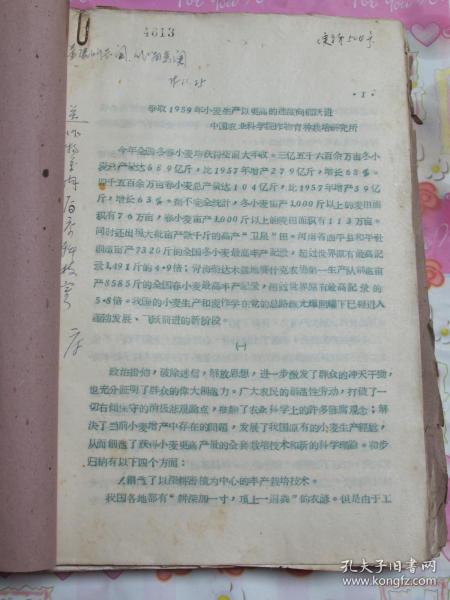 4613
·1·
争取1959年小麦生产以更高的速度向前跃进
中国农业科学院作物育种栽培研究所
今年全国冬春小麦均获得空前大丰收。三亿五千六百余万亩冬小
麦总产量达689亿斤,比1957年增产279亿斤,增长68%。
四千五百余万亩春小麦总产量达104亿斤,比1957年增产39亿
斤,增长63%。据不完全统计,冬小麦亩产1,000斤以上的麦田
面积有76万亩,春小麦亩产1,000斤以上的麦田面积有113万亩。
同时还出现大批亩产数千斤的高产“卫星”田。河南省西平县和平社
亩产7320斤的全国冬小麦最高丰产纪录,超过世界原有最高记
录1,491斤的4·9倍;青海柴达木盆地赛什克农场第一生产队亩
产8585斤的全国春小麦最高丰产纪录,超过世界原有最高记录的
5·8倍。我国的小麦生产和麦作学在党的总路线光辉照耀下已经进入
蓬勃发展、飞跃前进的新阶段。
(一)
政治挂帅,破除迷信,解放思想,进一步激发了群众的冲天干劲,
也充分证明了群众的伟大创造力。广大农民的创造性劳动,打破了一
切右倾保守的消极悲观论点,推翻了农业科学上的许多陈腐观念;解
决了当前小麦增产中存在的问题,发展了我国原有的小麦生产经验,
从而创造了获得小麦更高产量的全套栽培技术和新的科学理论。初步
归纳有以下四个方面:
1.创造了以深耕密植为中心的丰产栽培技术。
我国各地都有“耕深加一寸,顶上一遍粪”的农谚。但是由于工
孔夫子旧书网
www.kongfz.com